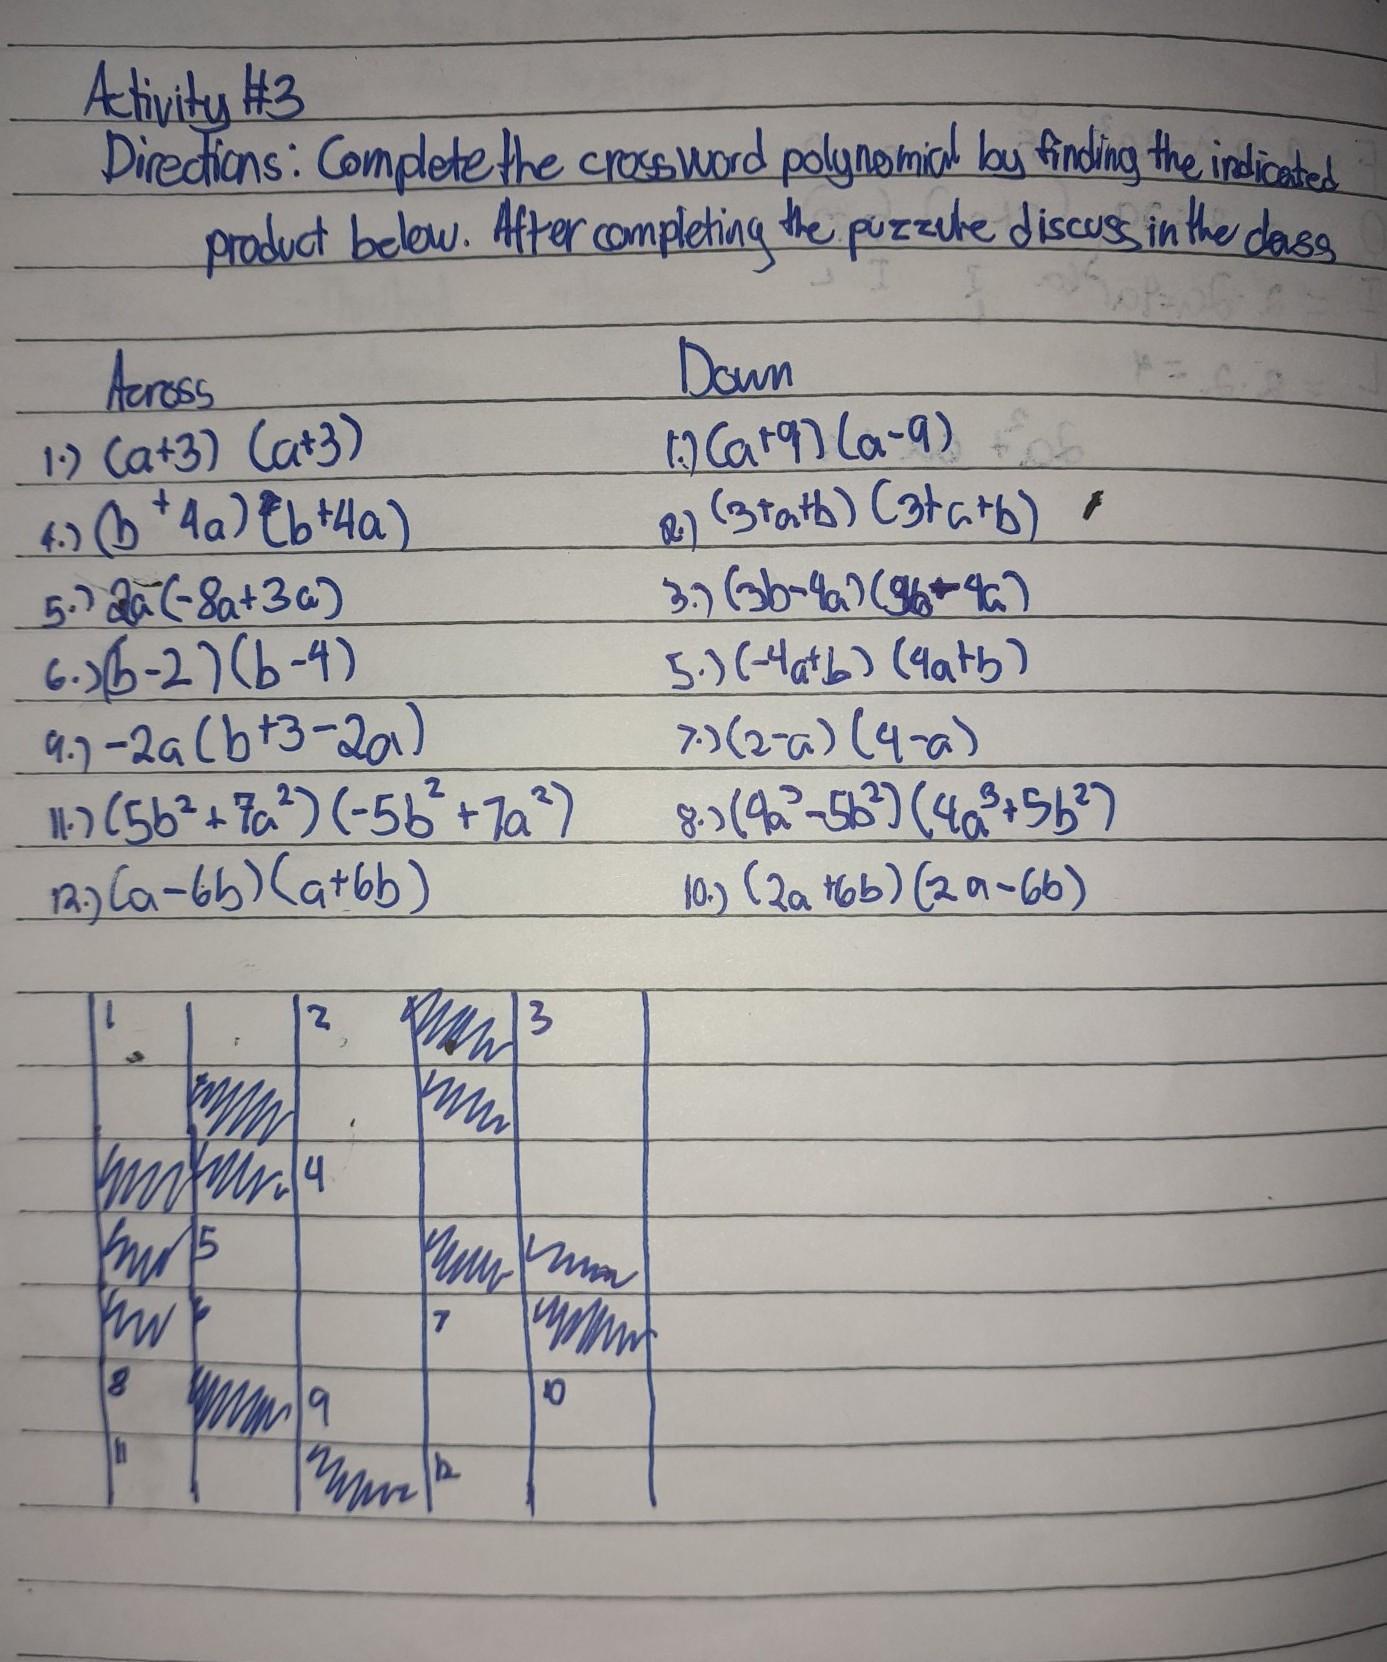 Activity #3
Directions: Complete the crossword polynomial by finding the indicated
product below. After completing the puzzule discuss in the class
Across
Down
1.) (a+3) (a+3)
1.) (a+9) (a-9)
4.) (b+4a) (b+4a)
2.) (3+a+b) (3+a+b)
5.) 2a (-8a+3a)
3.) (3b-4a) (3b-4a)
6.) (b-2) (b-4)
5.) (-4a+b) (4a+b)
9.) -2a (b+3-2a)
7.) (2-a) (4-a)
11.) (5b²+7a²) (-5b²+7a²)
8.) (4a³-5b²) (4a³+5b²)
12.) (a-6b) (a+6b)
10.) (2a+6b) (2a-6b)
1 2 3
4
5
6 7
8 9 10
11 12